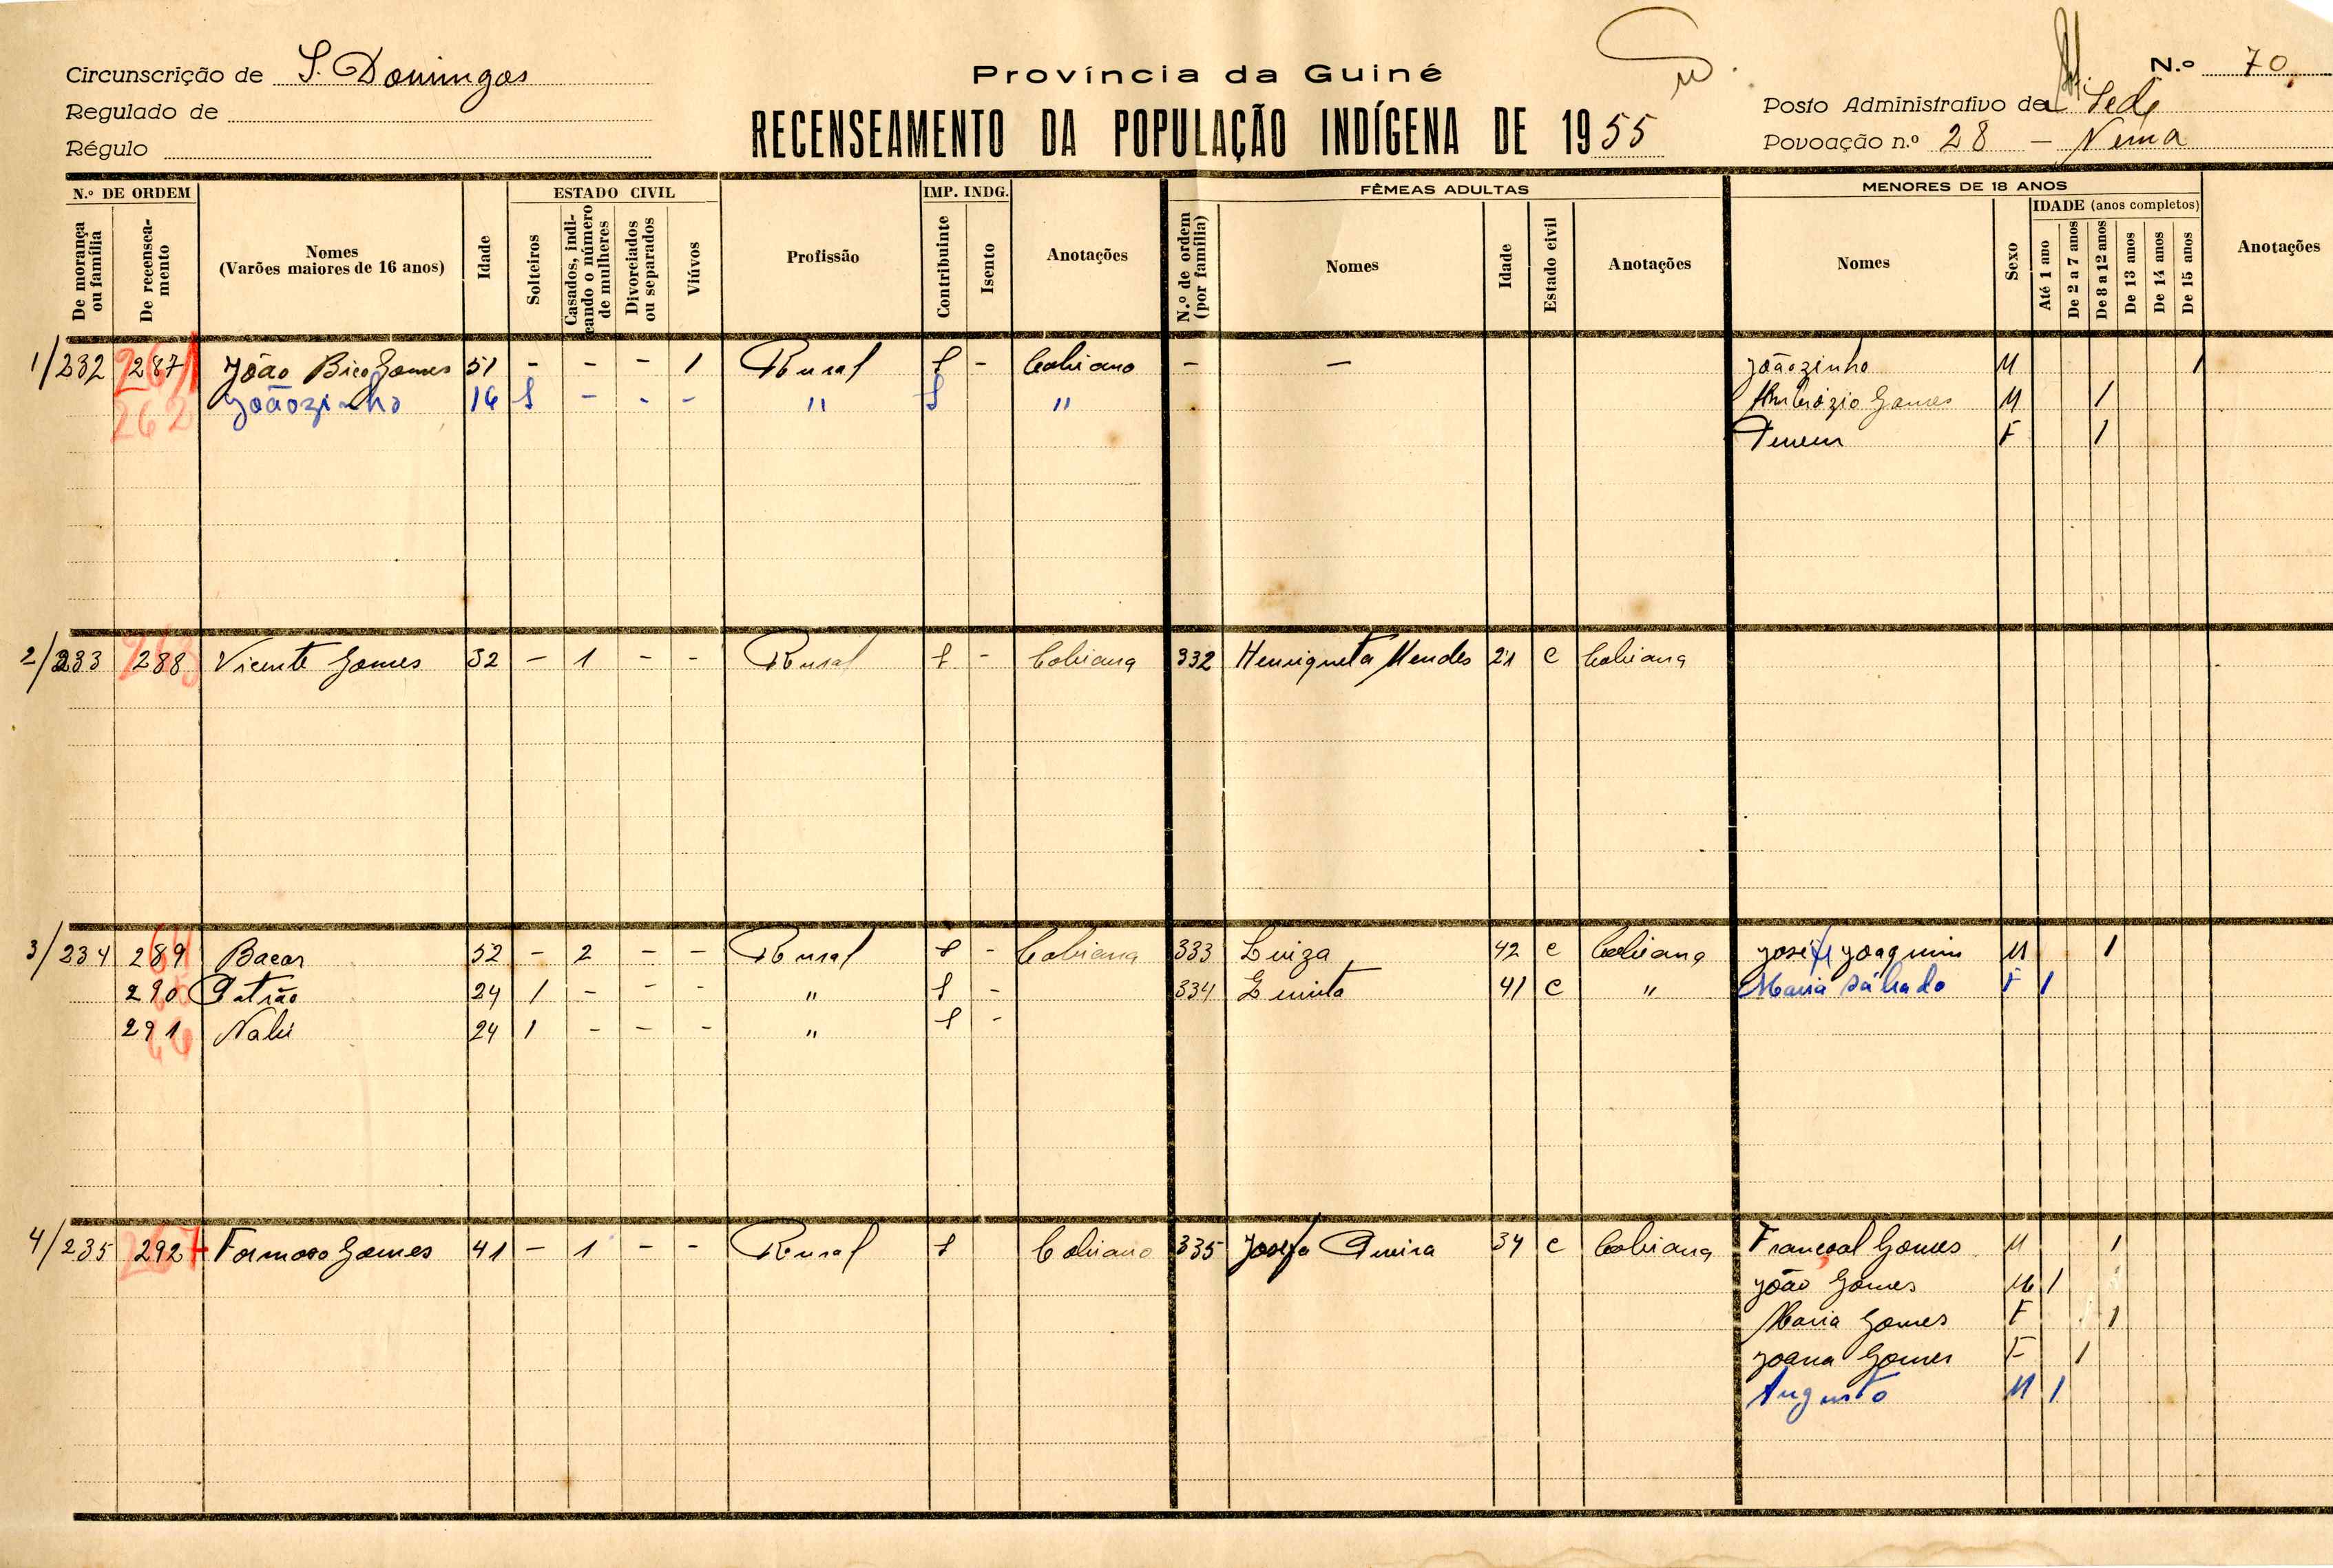 Circunscrição de S. Domingos
Regulado de
Régulo
Província da Guiné
RECENSEAMENTO DA POPULAÇÃO INDÍGENA DE 1955
N.º 70
Posto Administrativo de Sede
Povoação n.º 28 - Nema
N.º DE ORDEM
De morança ou família
De recenseamento
Nomes
(Varões maiores de 16 anos)
Idade
ESTADO CIVIL
Solteiros
Casados, indicando o número de mulheres
Divorciados ou separados
Viúvos
Profissão
IMP. INDG.
Contribuinte
Isento
Anotações
FÊMEAS ADULTAS
N.º de ordem (por família)
Nomes
Idade
Estado civil
Anotações
MENORES DE 18 ANOS
Nomes
Sexo
IDADE (anos completos)
Até 1 ano
De 2 a 7 anos
De 8 a 12 anos
De 13 anos
De 14 anos
De 15 anos
Anotações
1/232 287 261 João Bico Gomes 51 - - - 1 Rural f - Cobiano - - Joãozinho M 1
262 Joãozinho 16 S - - - " f " Ambrózio Gomes M 1
F 1
2/233 288 Vicente Gomes 32 - 1 - - Rural f - Cobiana 332 Henriqueta Mendes 21 C Cobiana
3/234 289 Bacar 52 - 2 - - Rural f - Cobiana 333 Luiza 42 C Cobiana José Joaquim M 1
290 Patrão 24 1 - - - " f - 334 41 C " Maria Sábado F 1
291 Nabi 24 1 - - - " f -
4/235 292 267 Formoso Gomes 41 - 1 - - Rural f Cobiano 335 Josefa 34 C Cobiana Françoal Gomes M 1
João Gomes M 1
Maria Gomes F 1
Joana Gomes F 1
Augusto M 1